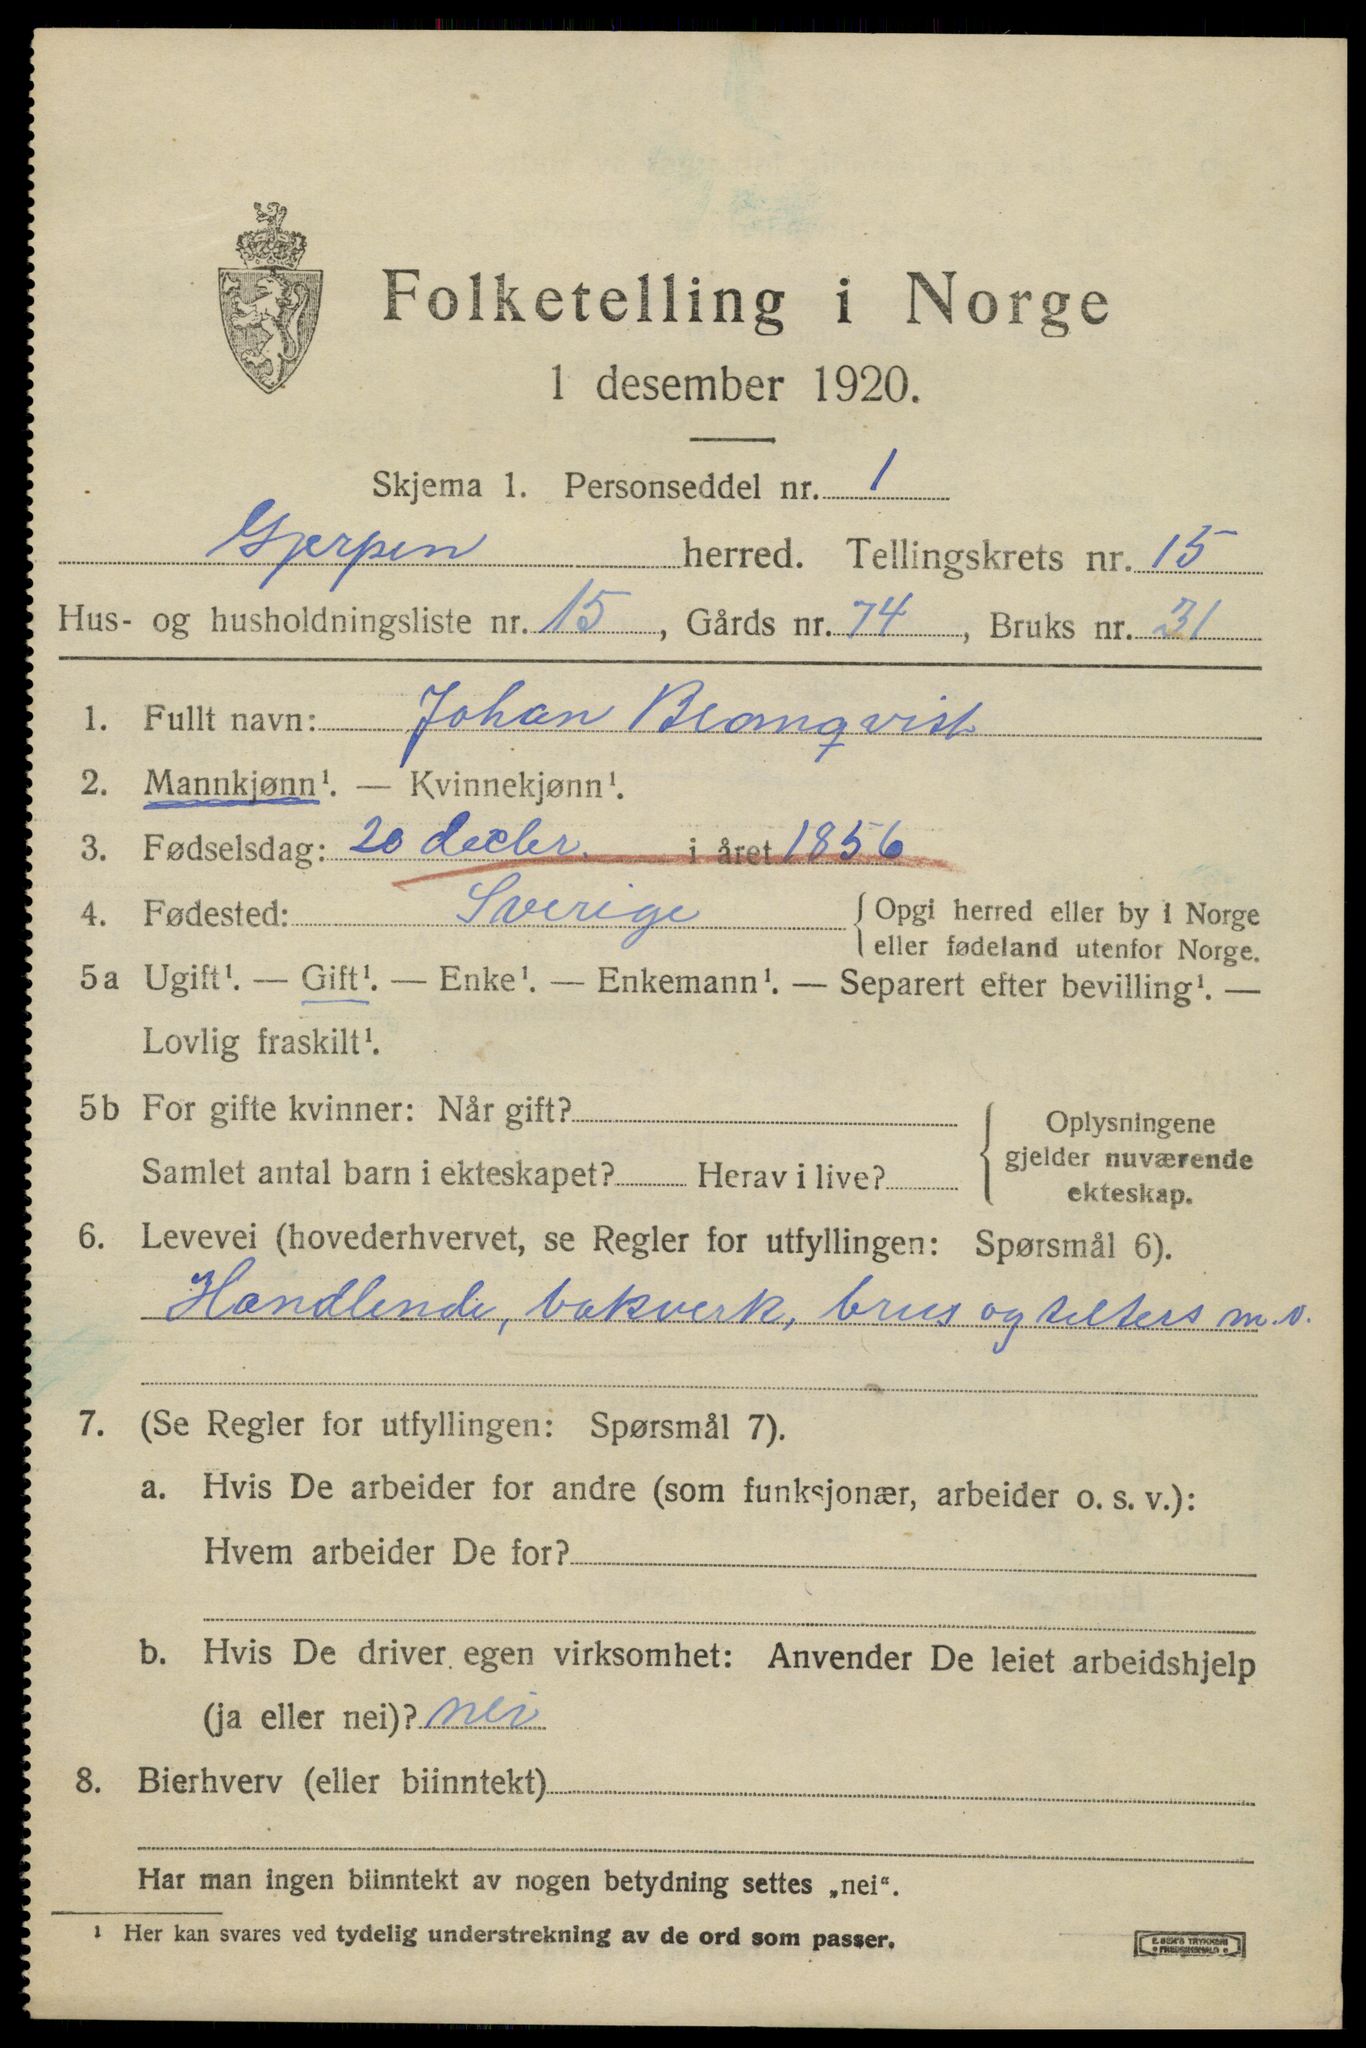 Folketelling i Norge
1 desember 1920.
Skjema 1. Personseddel nr. 1
Gjerpen herred. Tellingskrets nr. 15
Hus- og husholdningsliste nr. 15, Gårds nr. 74, Bruks nr. 31
1. Fullt navn: Johan Blomqvist
2. Mannkjønn¹. — Kvinnekjønn¹.
3. Fødselsdag: 20 decbr. i året 1856
4. Fødested: Sverige { Opgi herred eller by i Norge
eller fødeland utenfor Norge.
5a Ugift¹. — Gift¹. — Enke¹. — Enkemann¹. — Separert efter bevilling¹. —
Lovlig fraskilt¹.
5b For gifte kvinner: Når gift?
Samlet antal barn i ekteskapet? Herav i live?
Oplysningene
gjelder nuværende
ekteskap.
6. Levevei (hovederhvervet, se Regler for utfyllingen: Spørsmål 6).
Handlende, bakverk, brus og selters m.v.
7. (Se Regler for utfyllingen: Spørsmål 7).
a. Hvis De arbeider for andre (som funksjonær, arbeider o. s. v.):
Hvem arbeider De for?
b. Hvis De driver egen virksomhet: Anvender De leiet arbeidshjelp
(ja eller nei)? nei
8. Bierhverv (eller biinntekt)
Har man ingen biinntekt av nogen betydning settes „nei“.
¹ Her kan svares ved tydelig understrekning av de ord som passer.
E. SEM'S TRYKKERI
FREDRIKSHALD